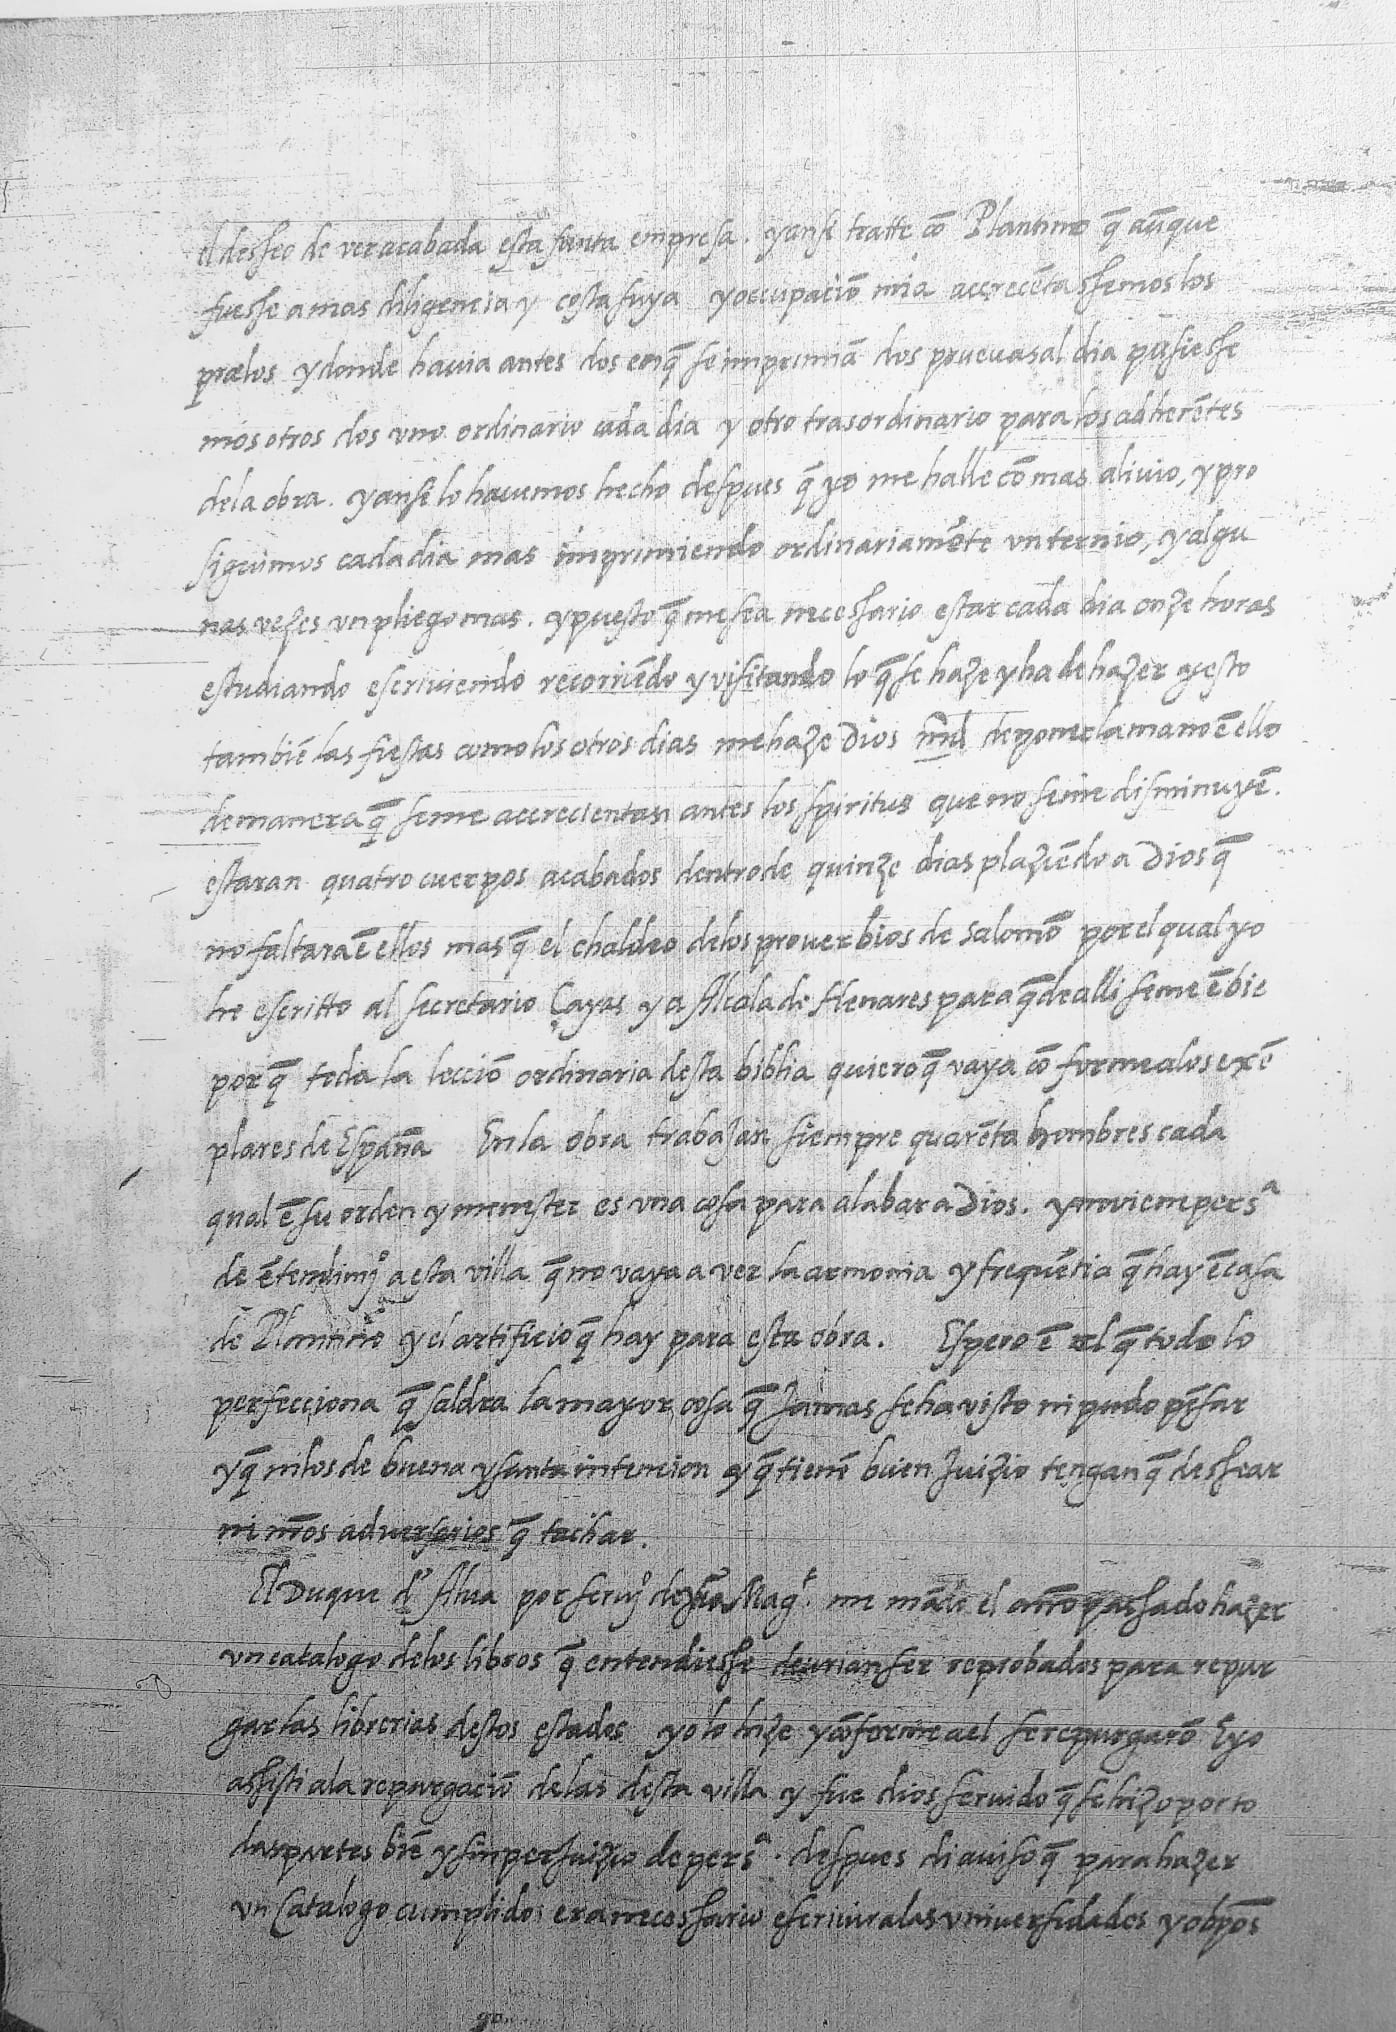 el desseo de ver acabada esta santa empresa. y ansi tratte cõ Plantino q̃ aũque
fuesse a mas diligencia y costa suya y occupaciõ mia accrecẽtassemos los
prælos y donde havia antes dos en q̃ se imprimiã dos pruevas al dia pusiesse
mos otros dos uno ordinario cada dia y otro trasordinario para los adherẽtes
de la obra. y ansi lo havemos hecho despues q̃ yo me halle cõ mas alivio, y pro
siguimos cada dia mas imprimiendo ordinariamẽte un ternio, y algu
nas vezes un pliego mas. y puesto q̃ me sea necessario estar cada dia onze horas
estudiando escriviendo recorriẽdo y visitando lo q̃ se haze y ha de hazer y esto
tambiẽ las fiestas como los otros dias me haze Dios mrd de poner la mano ẽ ello
de manera q̃ se me accrecientan antes los spiritus que no se me disminuyẽ.
estaran quatro cuerpos acabados dentro de quinze dias plaziẽdo a Dios q̃
no faltara ẽ ellos mas q̃ el chaldeo de los proverbios de Salomõ por el qual yo
he escritto al secretario Çayas y a Alcala de Henares para q̃ de alli se me ẽbie
por q̃ toda la lecciõ ordinaria desta biblia quiero q̃ vaya cõforme a los exẽ
plares de España En la obra trabajan siempre quarẽta hombres cada
qual ẽ su orden y menester es una cosa para alabar a Dios. y no viene persᵃ
de ẽtendimᵒ a esta villa q̃ no vaya a ver la armonia y frequẽtia q̃ hay ẽ casa
de Plantino y el artificio q̃ hay para esta obra. Espero ẽ el q̃ todo lo
perfecciona q̃ saldra la mayor cosa q̃ jamas se ha visto ni pudo pẽsar
y q̃ ni los de buena y santa intencion y q̃ tienẽ buen juizio tengan q̃ dessear
ni nr̃os adversarios q̃ tachar.
El Duque d' Alva por servᵒ de su Magᵈ. me mãdo el año passado hazer
un catalogo de los libros q̃ entendiesse devrian ser reprobados para repur
gar las librerias destos estados yo lo hize y cõforme a el se repurgarõ E yo
assisti a la repurgaciõ de las desta villa y fue dios servido q̃ se hizo por to
das partes biẽ y sin perjuizio de persᵃ. despues di aviso q̃ para hazer
un Catalogo cumplido era necessario escrivir a las universidades y obp̃os